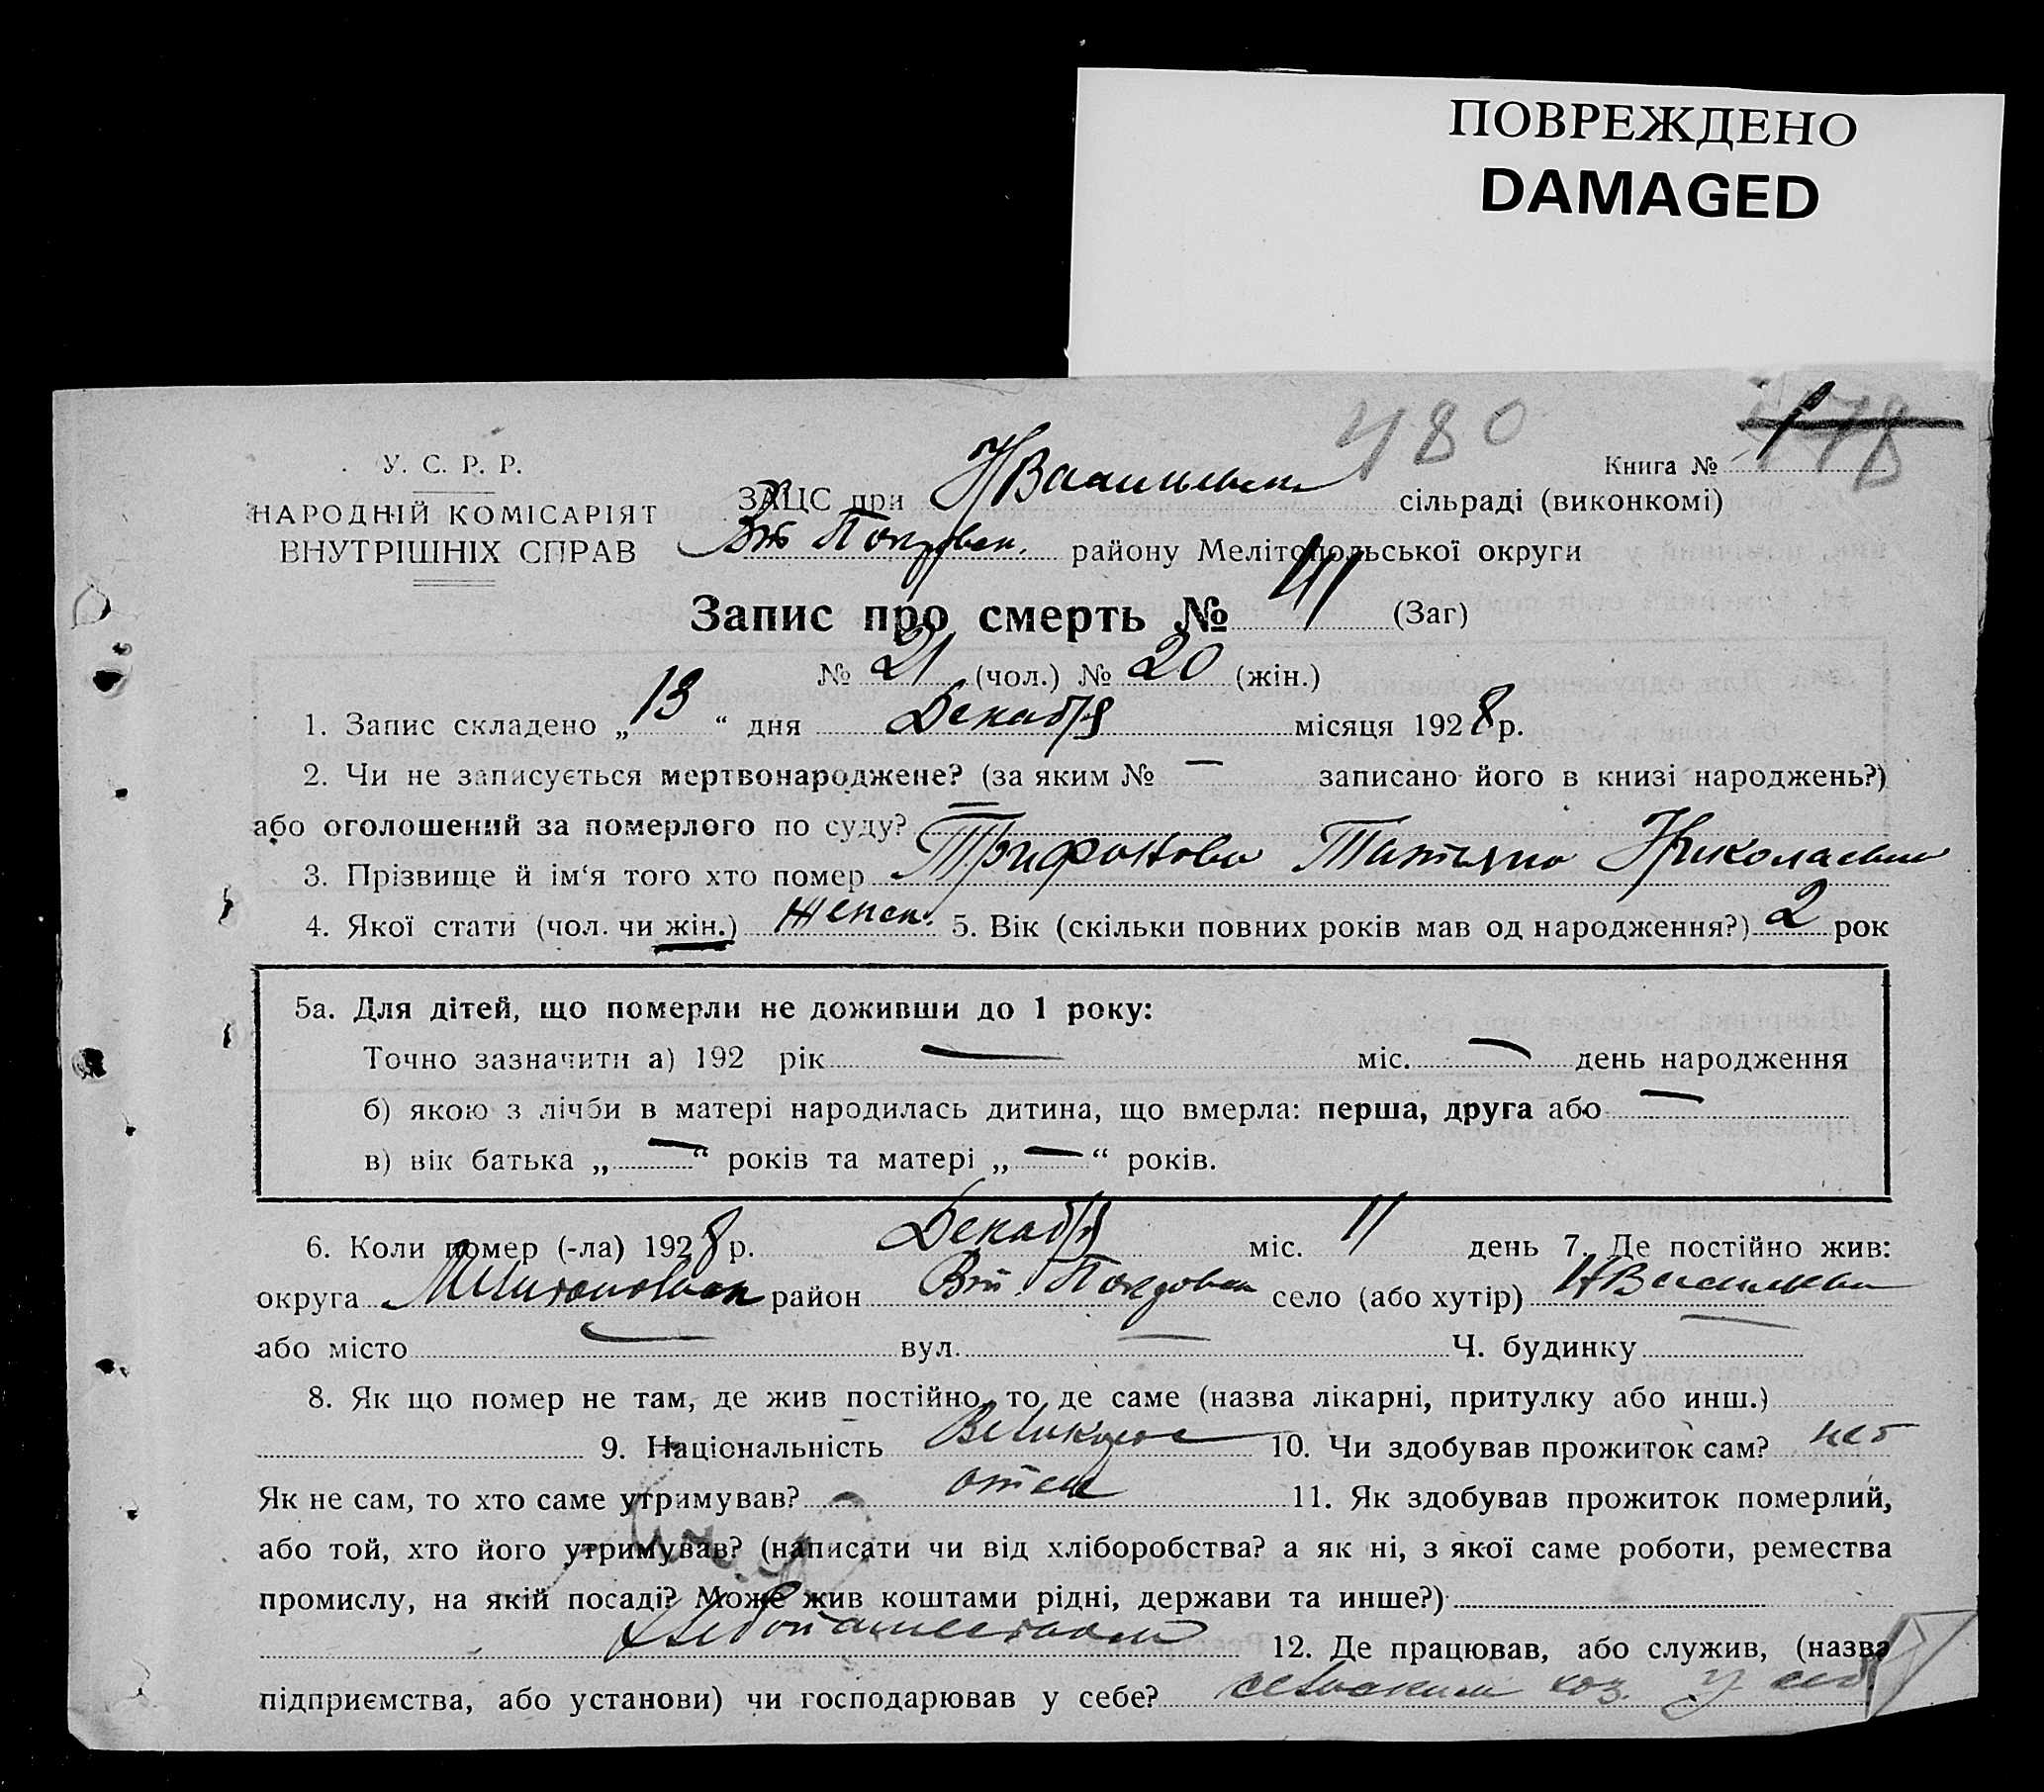 ПОВРЕЖДЕНО
DAMAGED
480
178
У. С. Р. Р.
НАРОДНІЙ КОМІСАРІЯТ
ВНУТРІШНІХ СПРАВ
Книга № 1
ЗАЦС при НВасильев сільраді (виконкомі)
Покровск. району Мелітопольської округи
Запис про смерть № 41 (Заг)
№ 21 (чол.) № 20 (жін.)
1. Запис складено „ 13 “ дня Декабря місяця 1928 р.
2. Чи не записується мертвонароджене? (за яким № — записано його в книзі народжень?)
або оголошений за померлого по суду? —
3. Прізвище й ім‘я того хто помер Трифонова Татьяна Николаевна
4. Якої стати (чол. чи жін.) женск. 5. Вік (скільки повних років мав од народження?) 2 рок
5а. Для дітей, що померли не доживши до 1 року:
Точно зазначити а) 192 рік — міс. — день народження
б) якою з лічби в матері народилась дитина, що вмерла: перша, друга або —
в) вік батька „ — “ років та матері „ — “ років.
6. Коли помер (-ла) 1928 р. Декабря міс. 11 день 7. Де постійно жив:
округа Мелитопольск район Покровск село (або хутір) НВасильевка
або місто — вул. — Ч. будинку —
8. Як що помер не там, де жив постійно, то де саме (назва лікарні, притулку або инш.)
9. Національність Великорос 10. Чи здобував прожиток сам? нет
Як не сам, то хто саме утримував? отец 11. Як здобував прожиток померлий,
або той, хто його утримував? (написати чи від хліборобства? а як ні, з якої саме роботи, ремества
промислу, на якій посаді? Може жив коштами рідні, держави та инше?)
Хлебопашеством 12. Де працював, або служив, (назва
підприємства, або установи) чи господарював у себе? сельским хоз. у себя